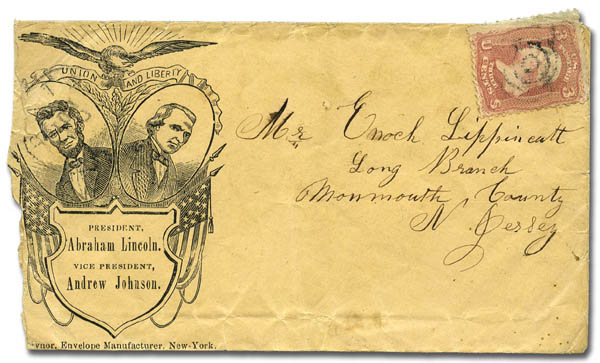 UNION AND LIBERTY
PRESIDENT,
Abraham Lincoln.
VICE PRESIDENT,
Andrew Johnson.
ynor, Envelope Manufacturer, New-York.
U S
3 CENTS 3
Mr Enoch Lippincatt
Long Branch
Monmouth County
N. Jersey